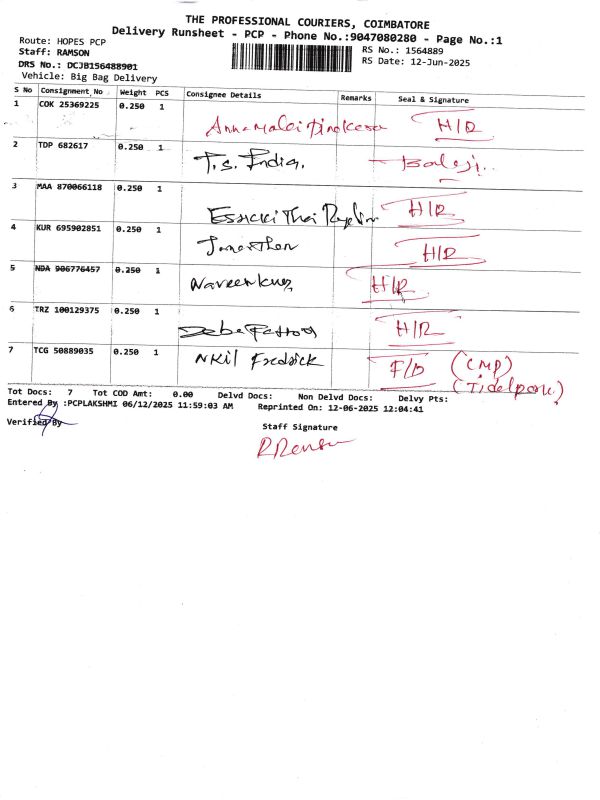 THE PROFESSIONAL COURIERS, COIMBATORE
Delivery Runsheet - PCP - Phone No.:9047080280 - Page No.:1
Route: HOPES PCP RS No.: 1564889
Staff: RAMSON RS Date: 12-Jun-2025
DRS No.: DCJB156488901
Vehicle: Big Bag Delivery
S No Consignment No Weight PCS Consignee Details Remarks Seal & Signature
1 COK 25369225 0.250 1
H/R
2 TDP 682617 0.250 1 T.S. India. Balaji..
3 MAA 870066118 0.250 1
H/R
4 KUR 695902851 0.250 1
H/R
5 NDA 906776457 0.250 1 H/R
6 TRZ 100129375 0.250 1
H/R
7 TCG 50889035 0.250 1 Nkil Fredrick F/D (CMP)
(Tidelpark)
Tot Docs: 7 Tot COD Amt: 0.00 Delvd Docs: Non Delvd Docs: Delvy Pts:
Entered By :PCPLAKSHMI 06/12/2025 11:59:03 AM Reprinted On: 12-06-2025 12:04:41
Verified By
Staff Signature